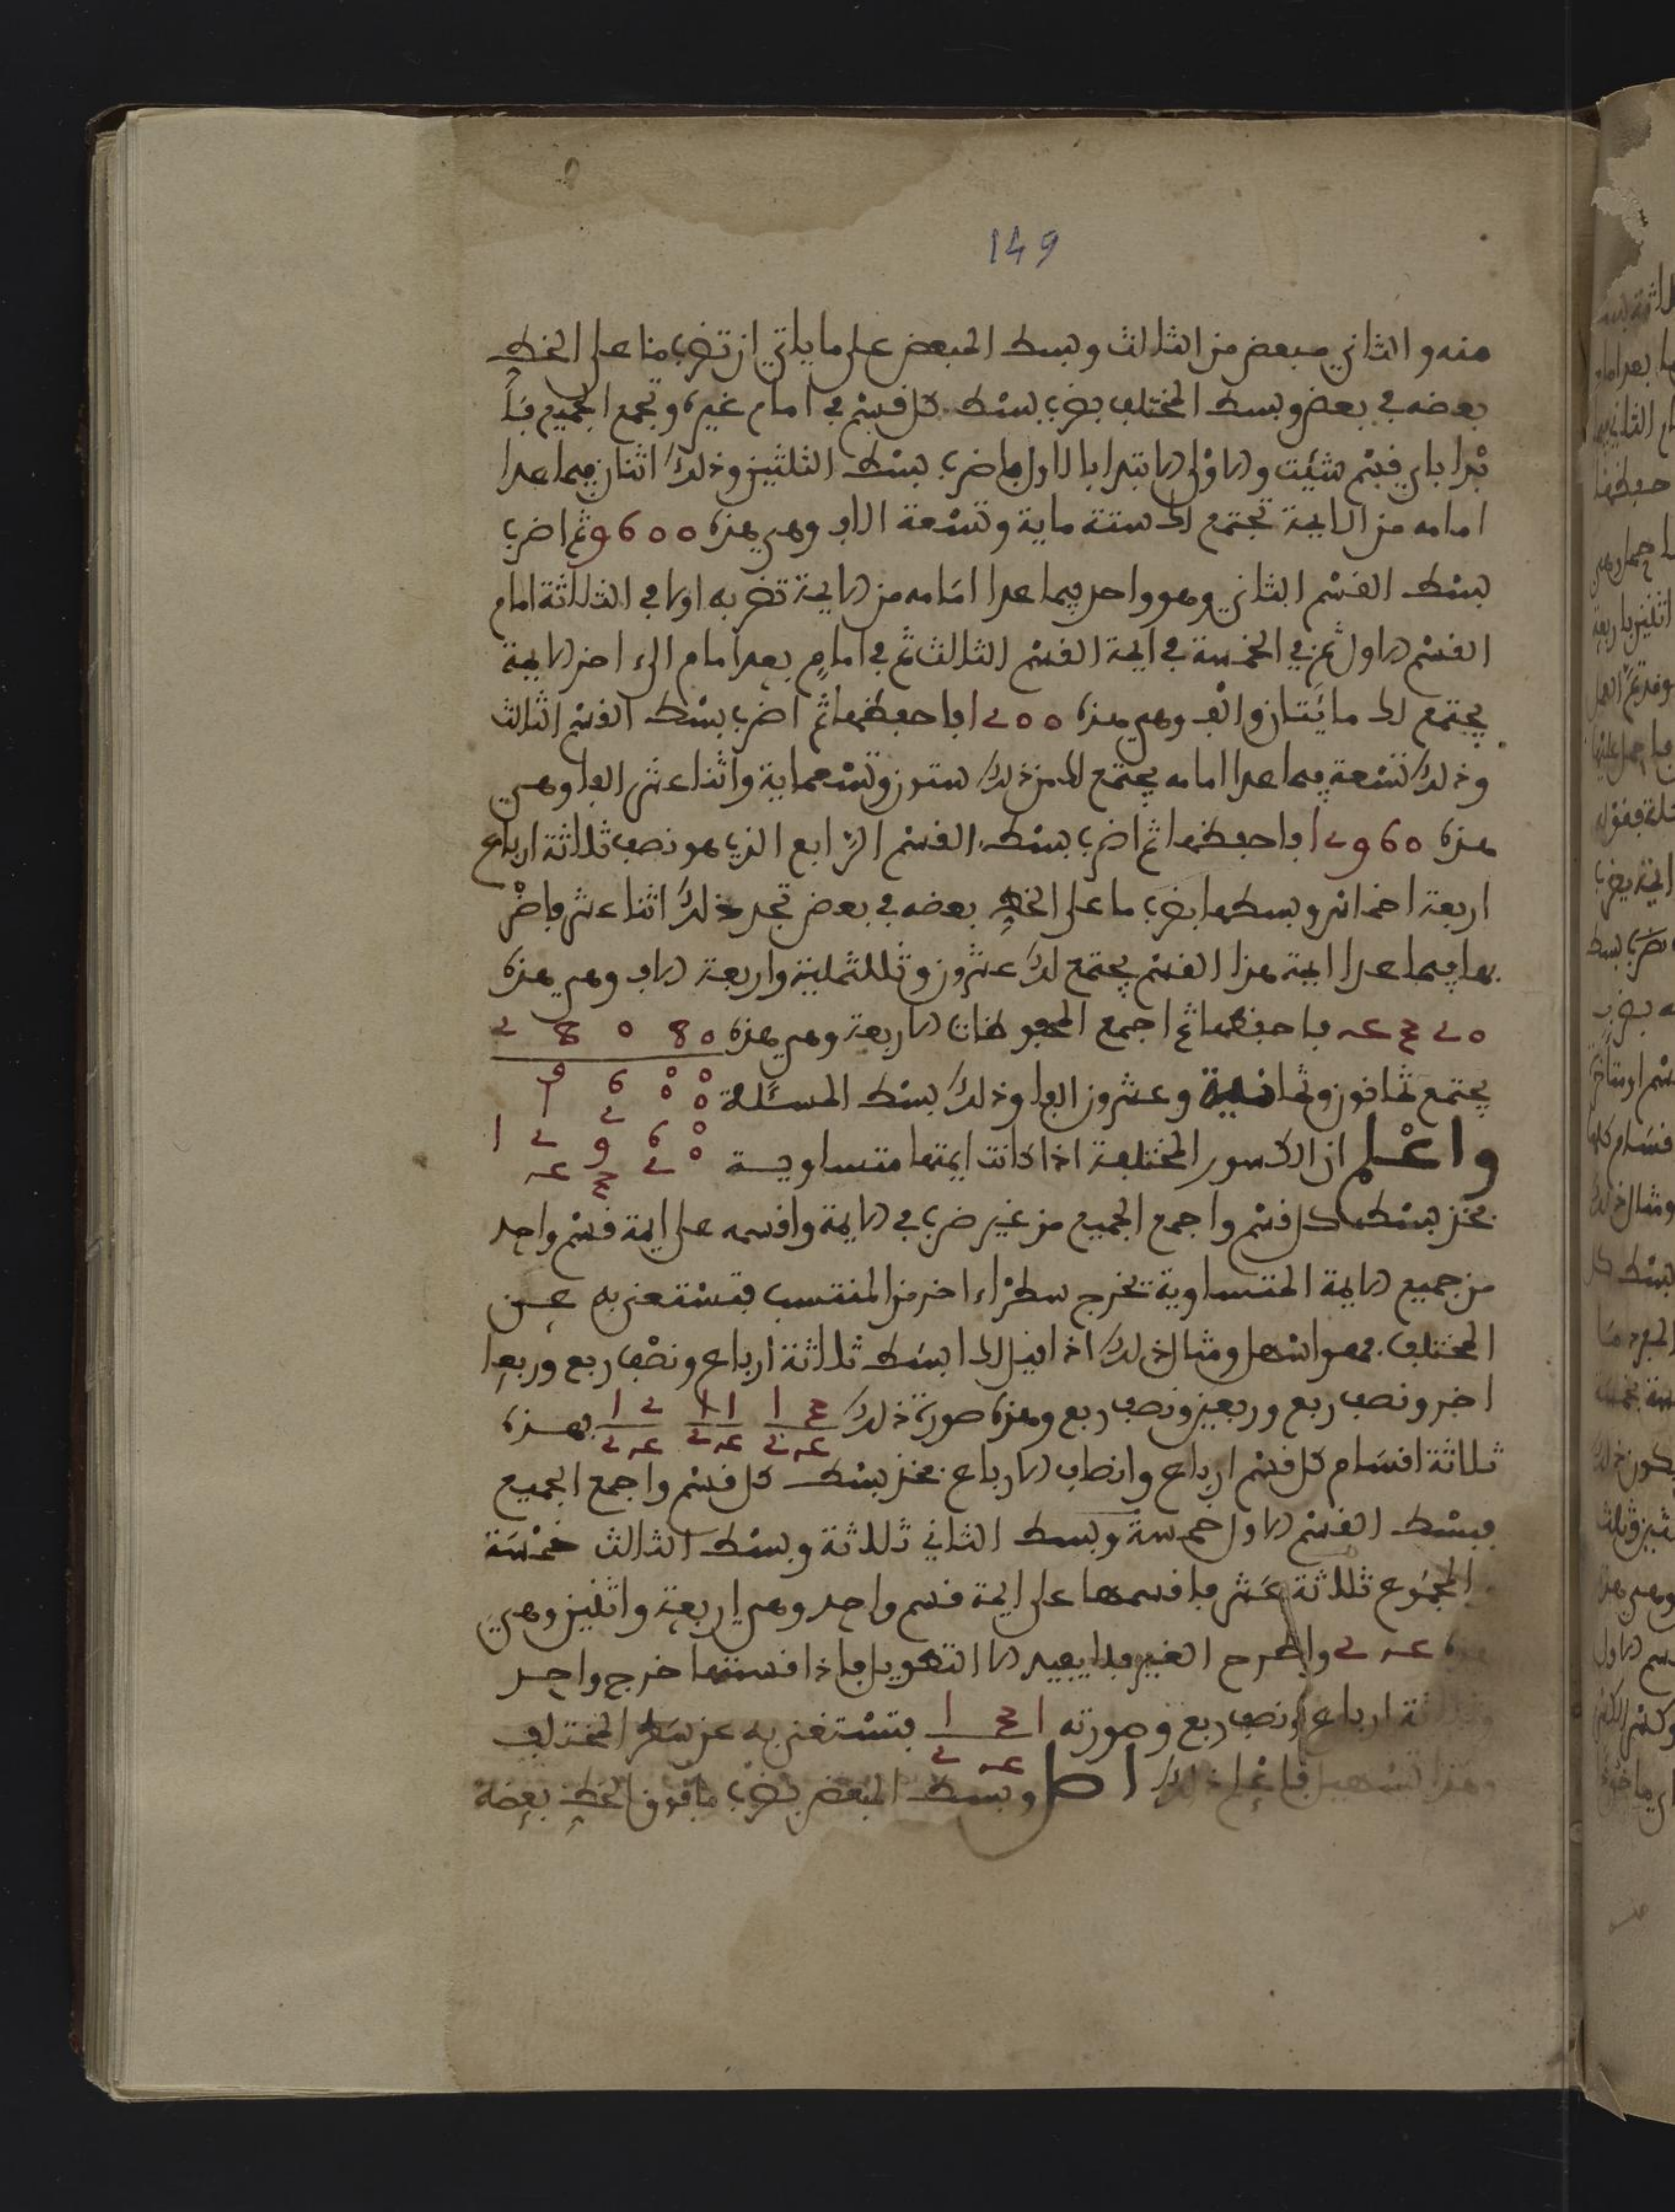 149
منه والثاني مبعض من الثالث وبسط المبعض على ما ياتي ان تضرب ما على الخط
بعضه في بعض وبسط المختلف بضرب بسط كل قسم في امام غيره وتجمع الجميع فا
بدا باي قسم شئت والاولى الابتدا بالاول فاضرب بسط الثلثين وذلك اثنان فيما عدا
امامه من الايمة تجتمع لك ستة ماية وتسعة الاف وهي هذه 9600 ثم اضرب
بسط القسم الثاني وهو واحد فيما عدا امامه من الايمة تضربه اولا في الثلاثة امام
القسم الاول ثم في الخمسة في ايمة القسم الثالث ثم في امام بعد امام الى اخر الايمة
يجتمع لك مائتان والف وهي هذه 1200 فاحفظها ثم اضرب بسط القسم الثالث
وذلك تسعة فيما عدا امامه يجتمع لك من ذلك ستون وتسعماية واثنا عشر الفا وهي
هذه 12960 فاحفظها ثم اضرب بسط القسم الرابع الذي هو نصف ثلاثة ارباع
اربعة اخماس وبسطها بضرب ما على الخط بعضه في بعض تجد ذلك اثنا عشر فاضر
بها فيما عدا ايمة هذا القسم يجتمع لك عشرون وثلاثماية واربعة الاف وهي هذه
4320 فاحفظها ثم اجمع المحفوظات الاربعة وهي هذه 2 8 0 8 0
يجتمع ثمانون وثمانية وعشرون الفا وذلك بسط المسئلة 9 6 0 0
1 2 0 0
واعلم ان الكسور المختلفة اذا كانت ايمتها متساوية 1 2 9 6 0
4 3 2 0
فخذ بسط كل قسم واجمع الجميع من غير ضرب في الايمة واقسمه على ايمة قسم واحد
من جميع الايمة المتساوية تخرج سطرا اخر من المنتسب فتستغني به عن
المختلف فهو اسهل ومثال ذلك اذا قيل لك ابسط ثلاثة ارباع ونصف ربع وربعا
اخر ونصف ربع وربعين ونصف ربع وهذه صورة ذلك 1 3 1 1 1 2 فهذه
2 4 2 4 2 4
ثلاثة اقسام كل قسم ارباع وانصاف الارباع فخذ بسط كل قسم واجمع الجميع
فبسط القسم الاول سبعة وبسط الثاني ثلاثة وبسط الثالث خمسة
المجموع عشر فاقسمها على ايمة قسم واحد وهي اربعة واثنين وهي
2 4 واطرح الغير فلا يفيد الا التهويل فاذا قسمتها خرج واحد
ارباع ونصف ربع وصورته 1 3 1 فتستغني به عن بسط المختلف
2 4
وهذا تسهيل فاعلم ذلك وبسط المبعض بضرب ما فوق الخط بعضه